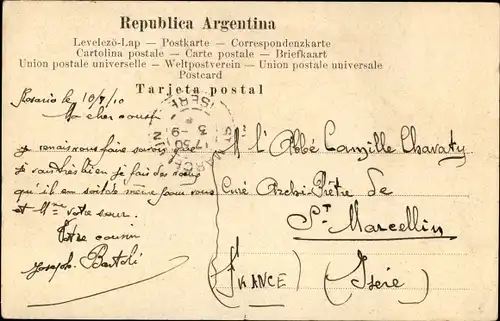 Republica Argentina
Levelező-Lap — Postkarte — Correspondenzkarte
Cartolina postale — Carte postale — Briefkaart
Union postale universelle — Weltpostverein — Union postale universale
Postcard
Tarjeta postal
Rosario le 10/8/10
Mon cher cousin
je venais vous faire savoir que
je vais très bien je fais des vœux
qu'il en soit de même pour vous
et Mme votre sœur.
Votre cousin
Joseph Bartoli
ST MARCELLIN
ISERE
17 30
3 - 9
A l'Abbé Camille Chavaty
Curé Archi-Prêtre de
St Marcellin
(FRANCE) (Isère)